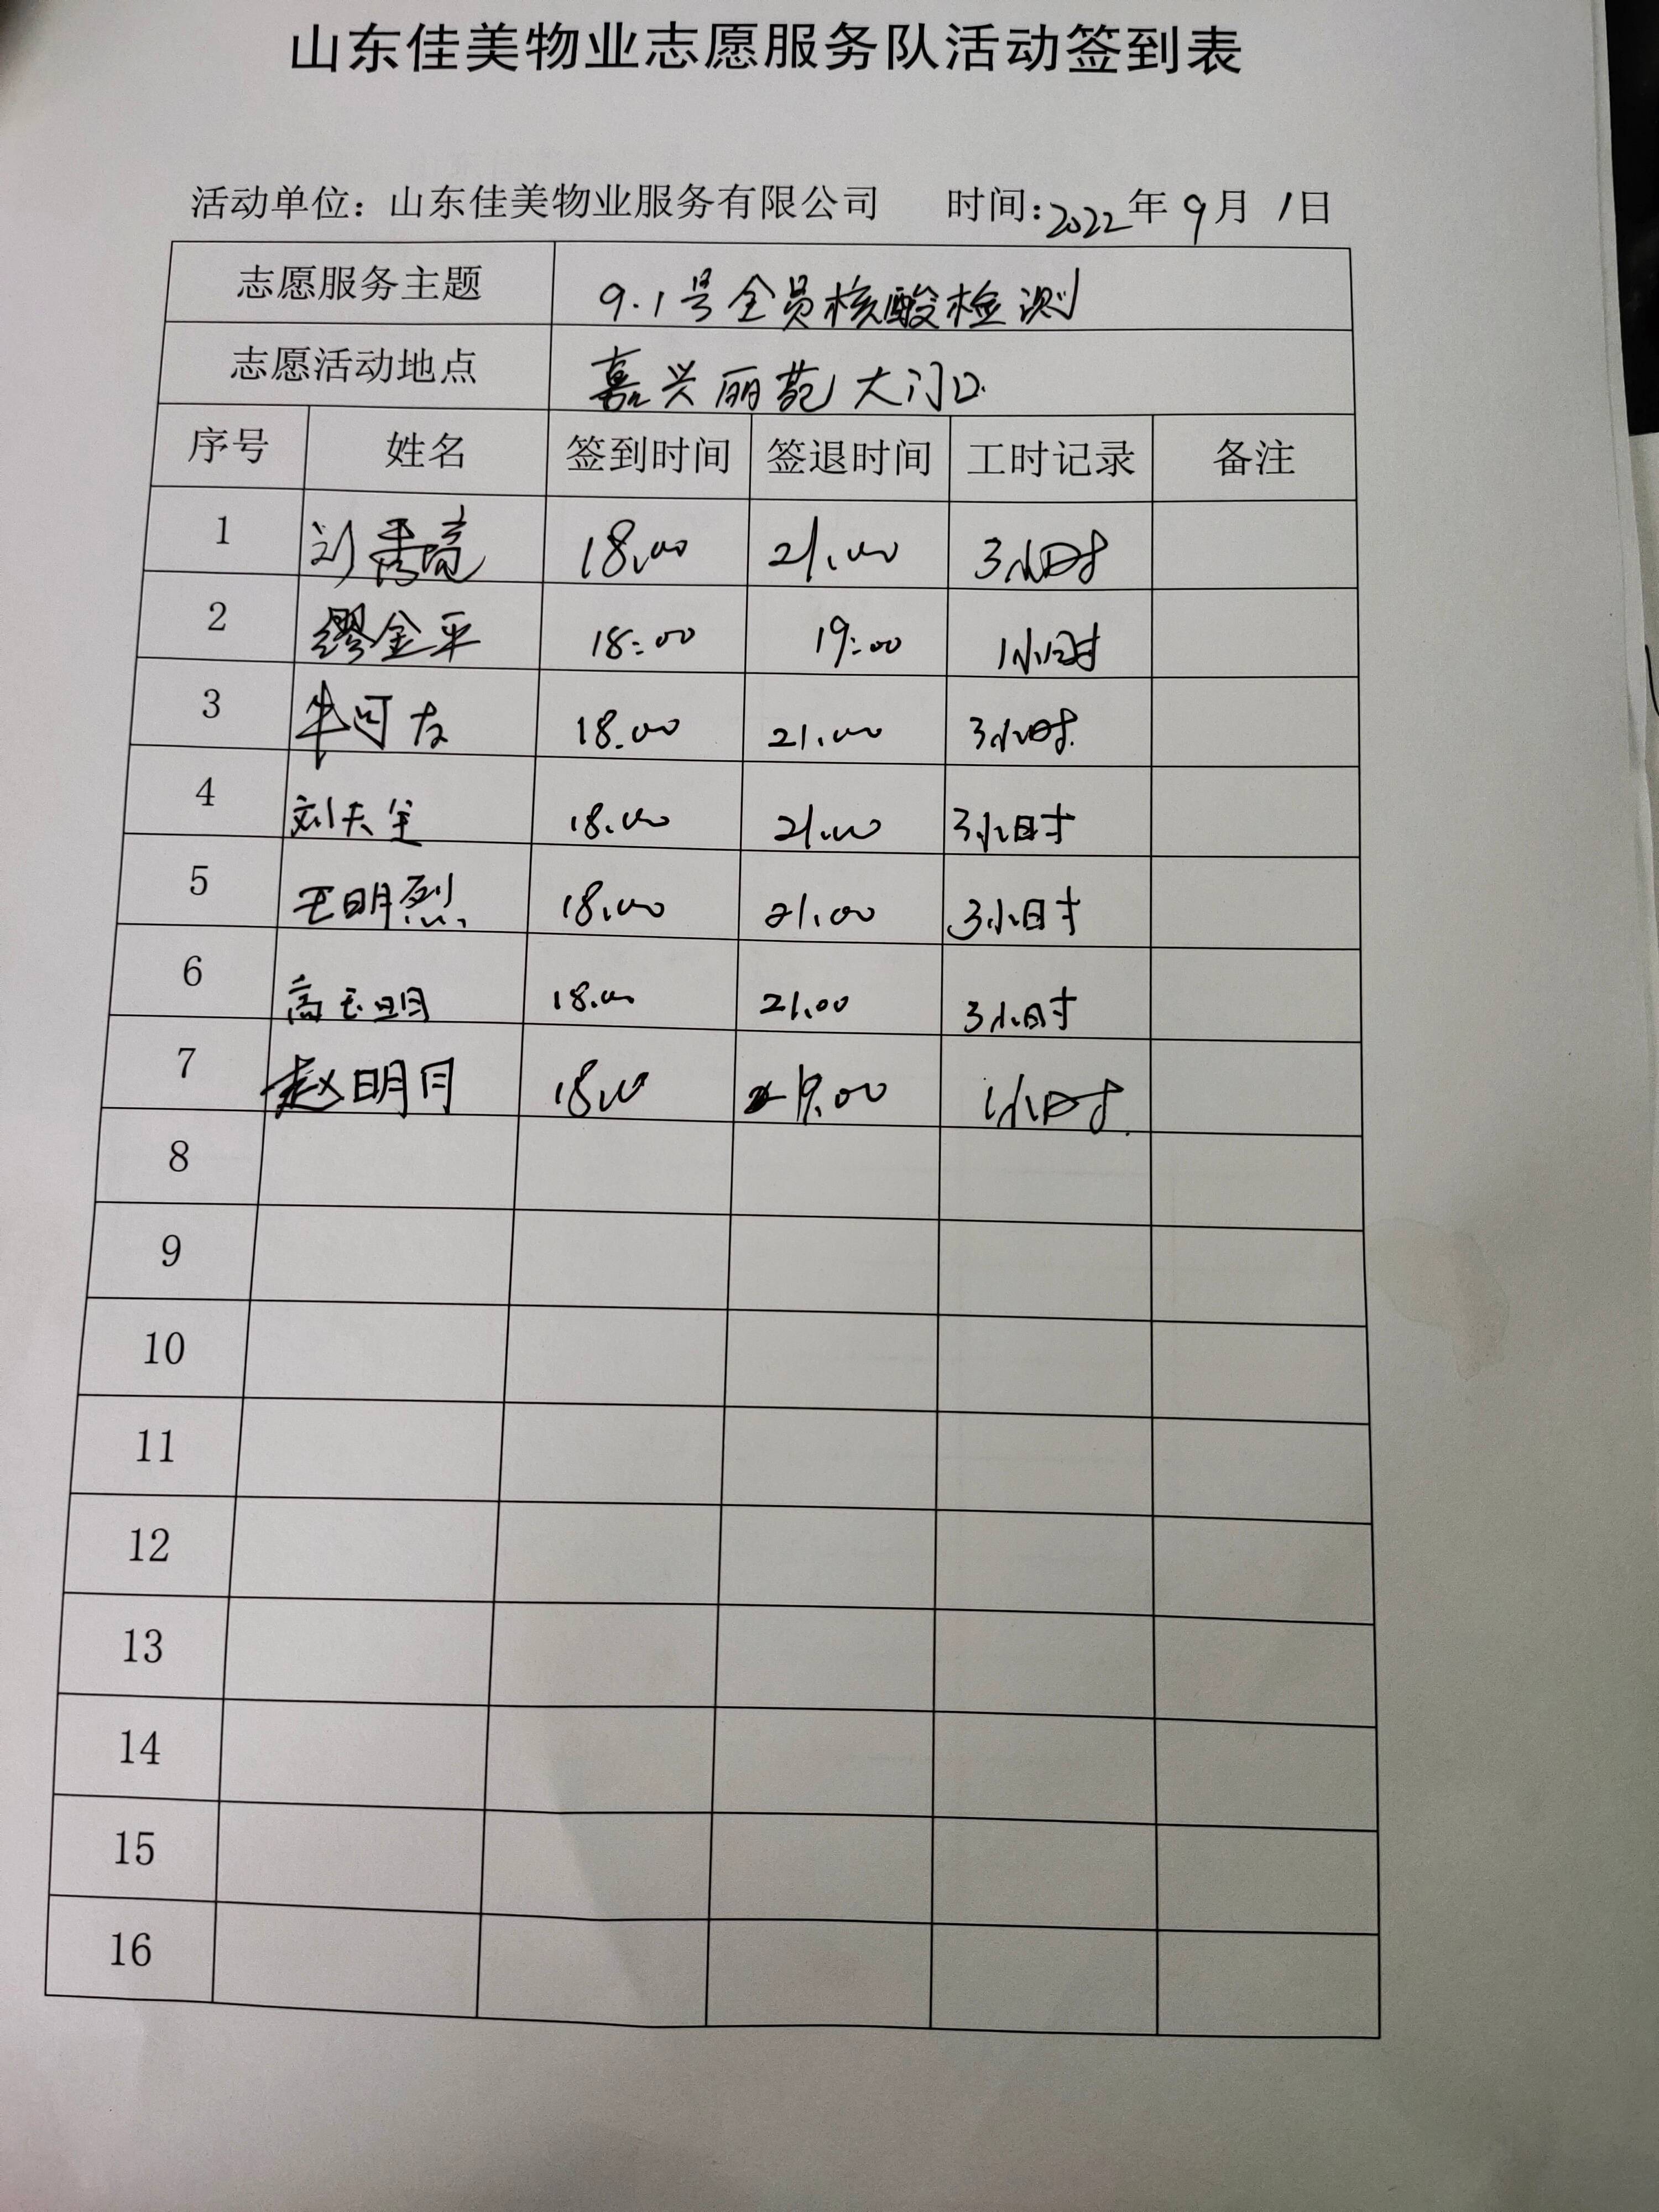 山东佳美物业志愿服务队活动签到表
活动单位：山东佳美物业服务有限公司 时间：2022年9月1日
志愿服务主题 9.1号全员核酸检测
志愿活动地点 嘉兴丽苑大门口
序号 姓名 签到时间 签退时间 工时记录 备注
1 刘秀亮 18.00 21.00 3小时
2 缪金平 18:00 19:00 1小时
3 牛可友 18.00 21.00 3小时.
4 刘天 18.00 21.00 3小时
5 王明烈 18.00 21.00 3小时
6 高玉明 18.00 21.00 3小时
7 赵明月 18.00 19.00 1小时.
8
9
10
11
12
13
14
15
16